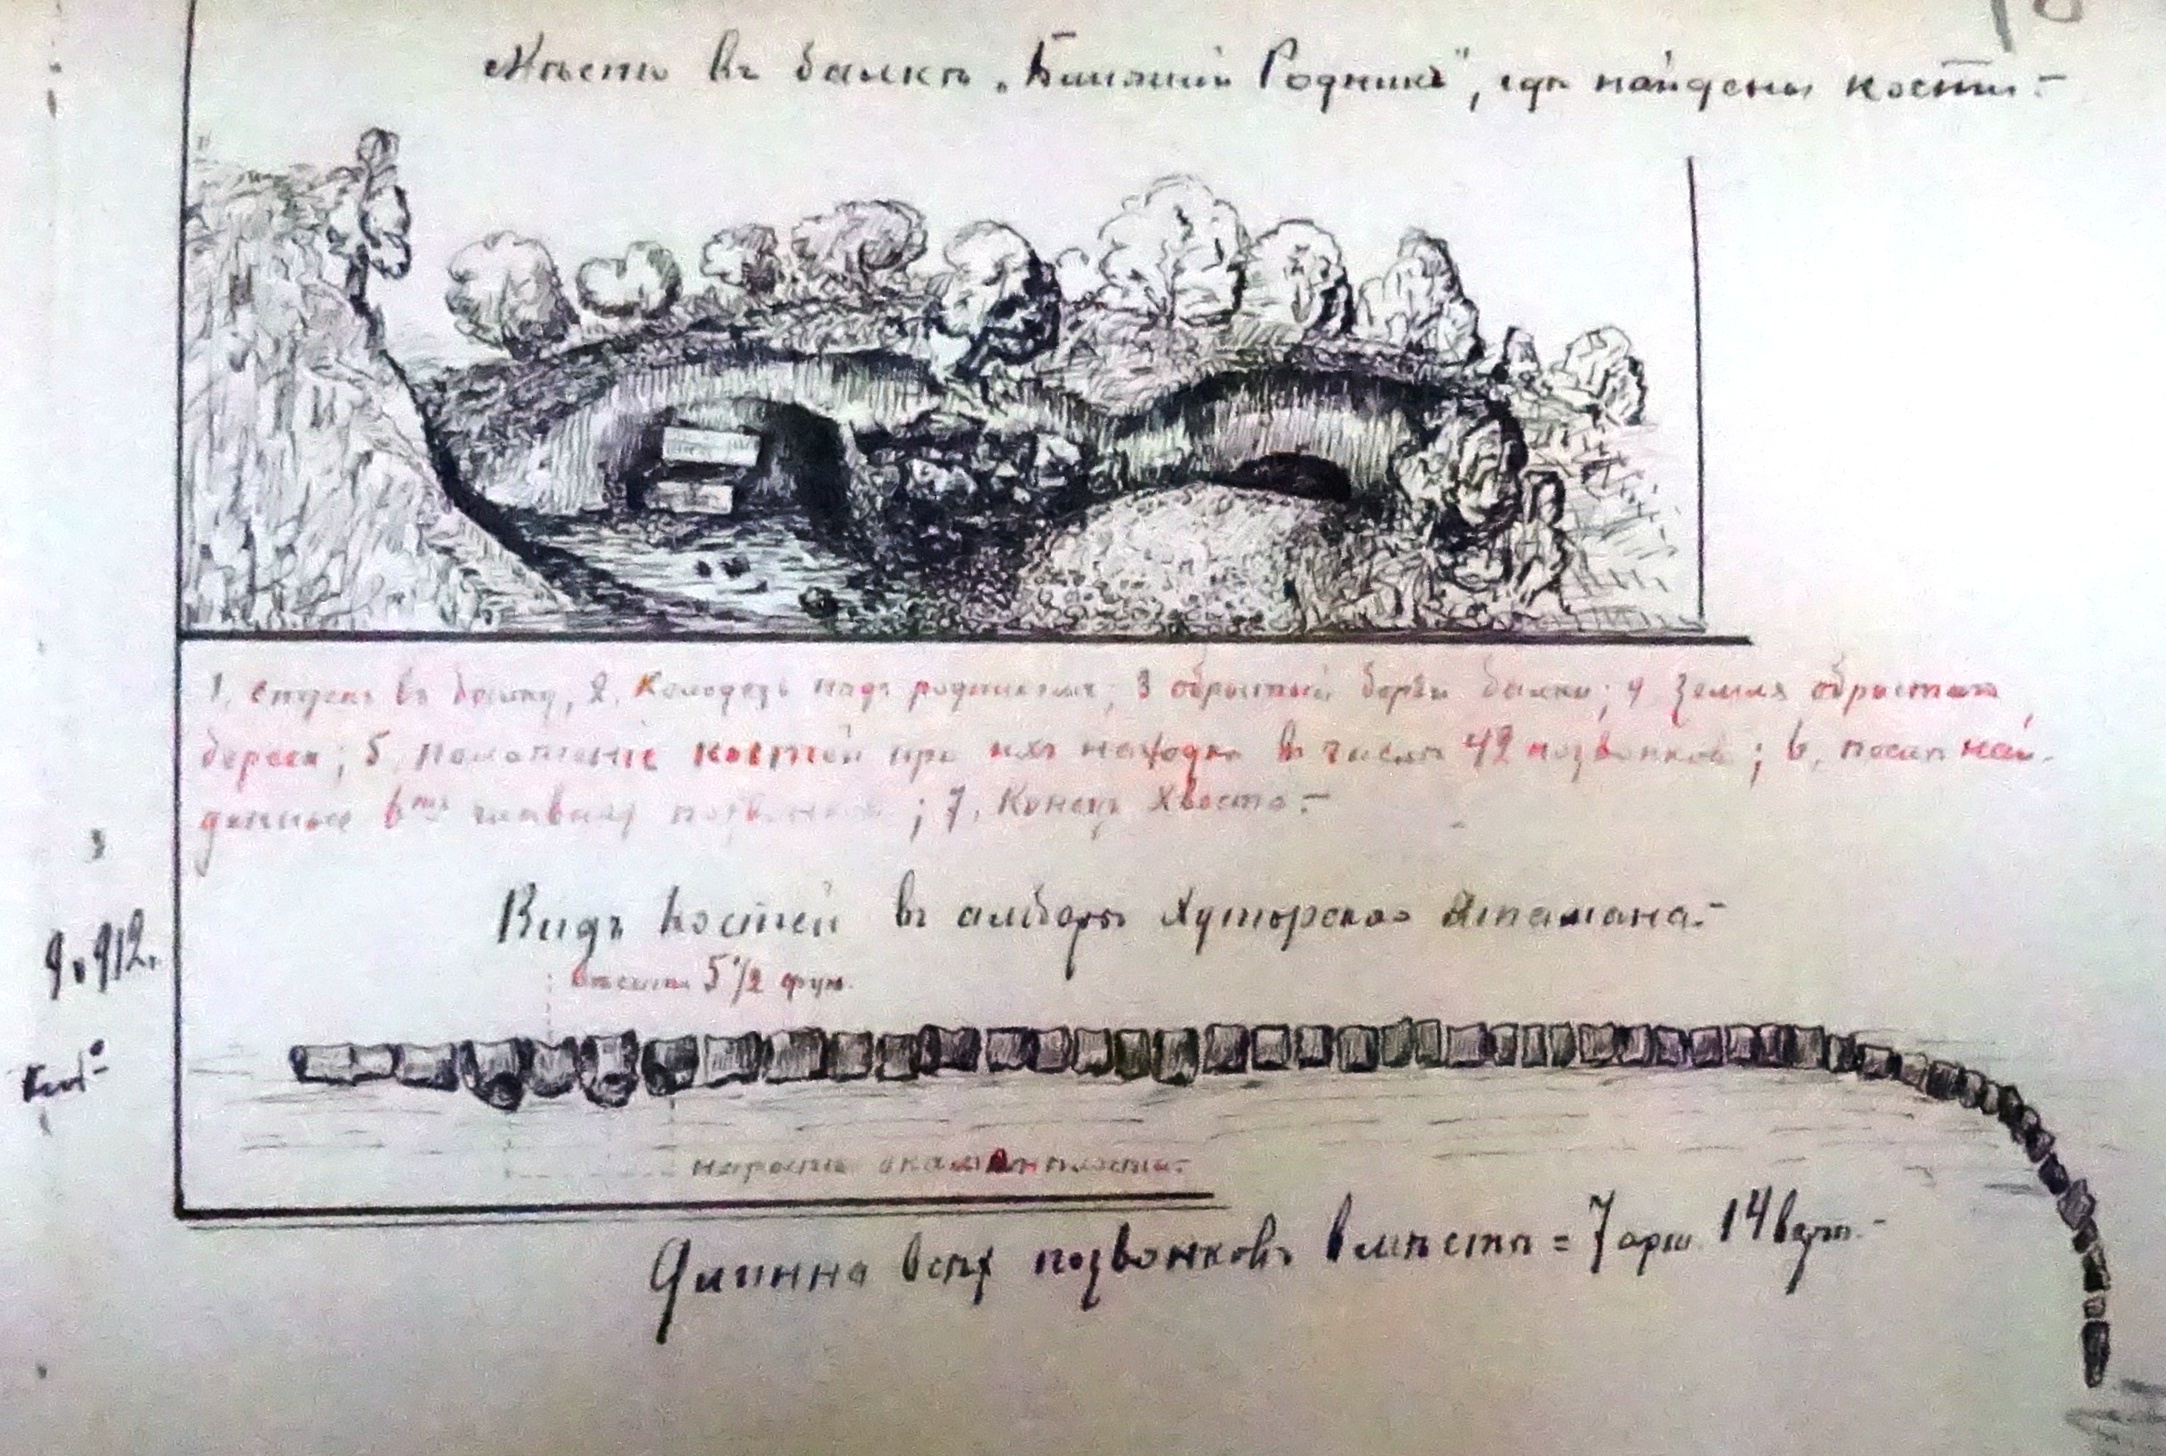 Мѣсто въ балкѣ „Ближній Родникъ", гдѣ найдены кости.-
1, спускъ въ балку, 2. Колодезь надъ родникомъ; 3 обрытый берегъ балки; 4 Земля обрытаго
берега; 5, Положеніе костей при ихъ находкѣ въ числѣ 42 позвонковъ; 6, най-
денные позвонки; 7, Конецъ Хвоста.-
Видъ Костей въ амбарѣ Хуторского Атамана.-
5 1/2 фун.
9.912.
наросты окаменѣлости.-
Длинна всѣх позвонковъ вмѣстѣ = 7 арш. 14 верш.-